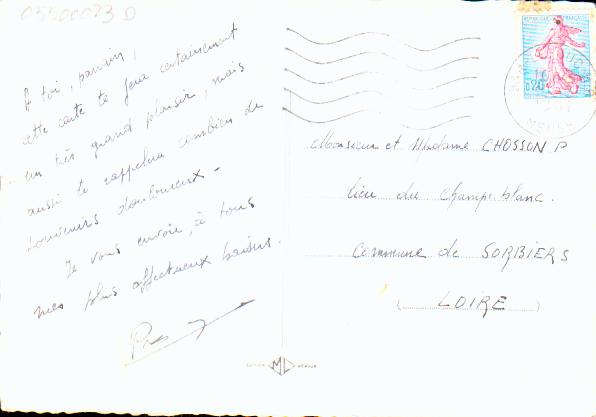 05500073 D
A toi, parrain,
cette carte te fera certainement
un très grand plaisir, mais
aussi te rappelera combien de
souvenirs douloureux -
Je vous envoie, à tous
mes plus affectueux baisers.
REPUBLIQUE FRANÇAISE
0,20
Monsieur et Madame CHOSSON P
lieu du Champ-blanc.
Commune de SORBIERS
( LOIRE )
EDITION ML